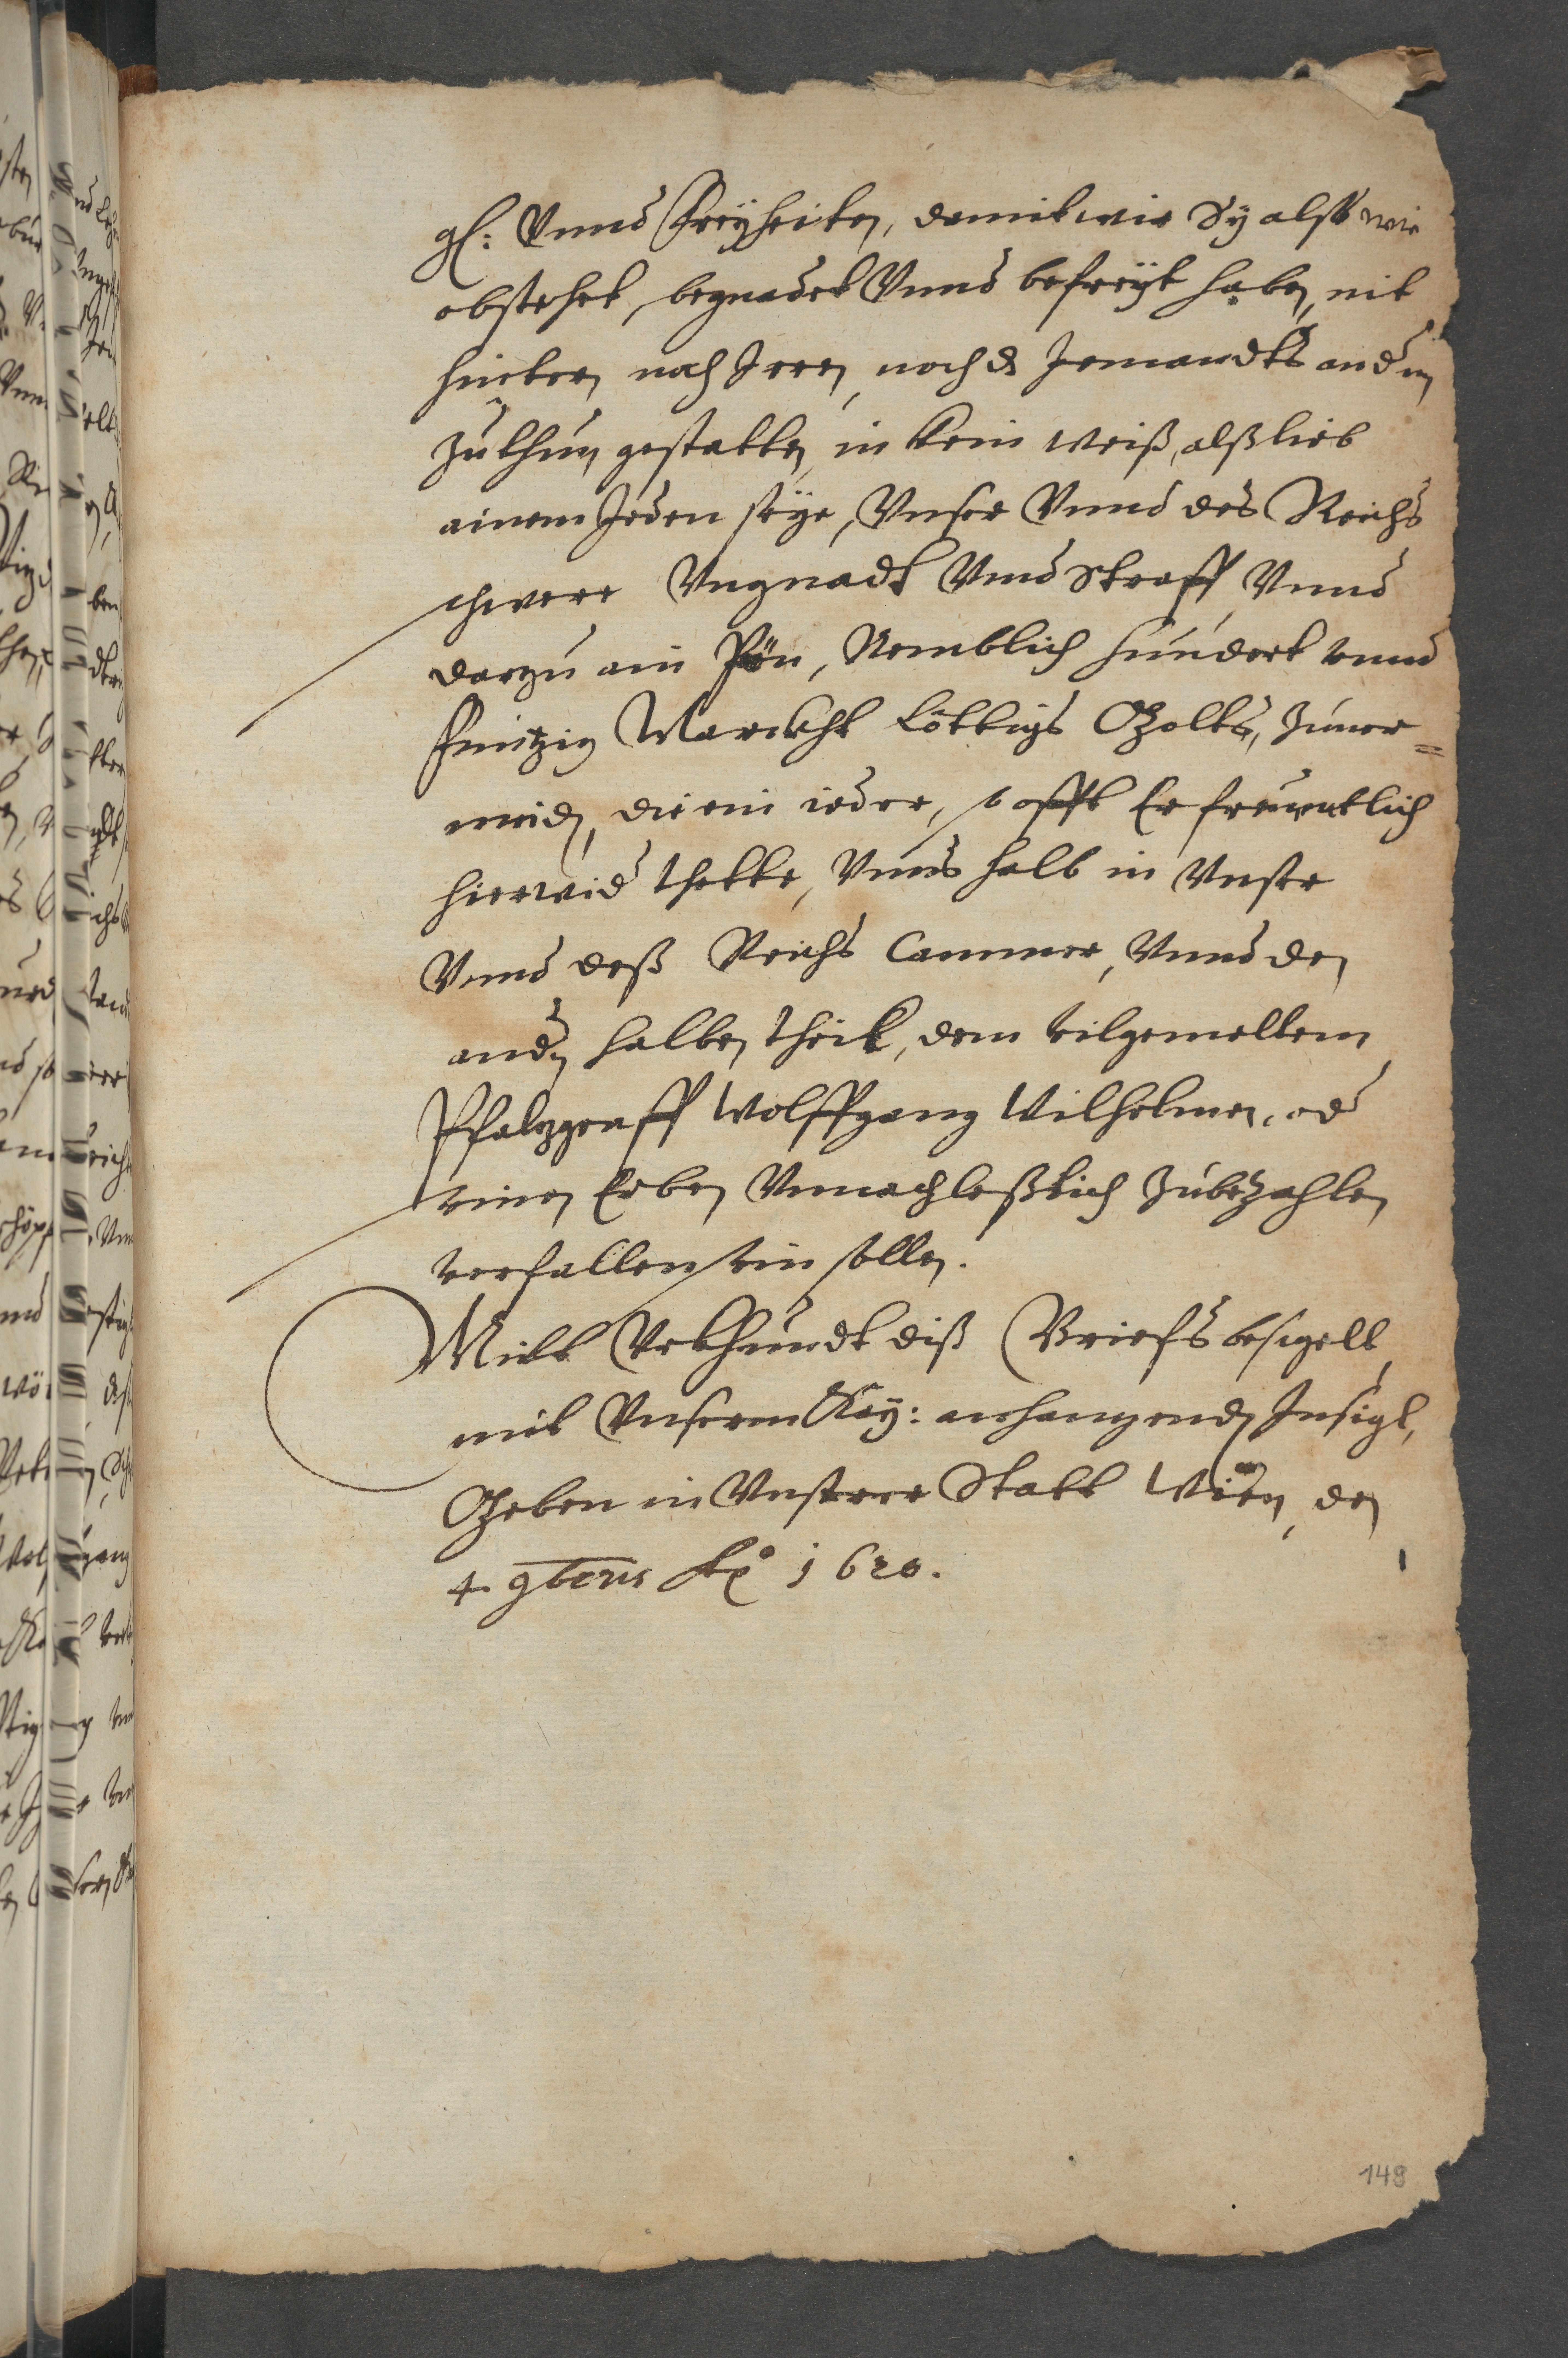 gl: Vnnd Freÿheiten, damit wir Sÿ alßo wie
obstehet, begnadet Vnnd befreÿt haben, nit
hindern noch Irren, noch dz Jemandts andern
Zuthun gestatten, in kein weiß, alß lieb
ainem Jeden seÿe, Vnser Vnnd des Reichs
schwere Vngnadt Vnnd Straff, Vnnd
darzu ain Pön, Nemblich hundert vnnd
Funfzig Marckht löttigs Goltz, Zuuer=
meiden, die ein ieder, so offt Er freuentlich
hierwider thette, Vnns halb in Vnsere
Vnnd deß Reichs Cammer, Vnnd den
andern halben theil, dem vilgemeltem
Pfalzgraff Wolffgang Wilhelmen, oder
seinen Erben Vnnachleßlich Zubezahlen
verfallen sein sollen.
Mitt Vrkhundt diß Briefs besigelt,
mit Vnserm Kay: anhangenden Insigl,
Geben in Vnserer Statt Wien, den
4. 9bris Ao 1620.
149